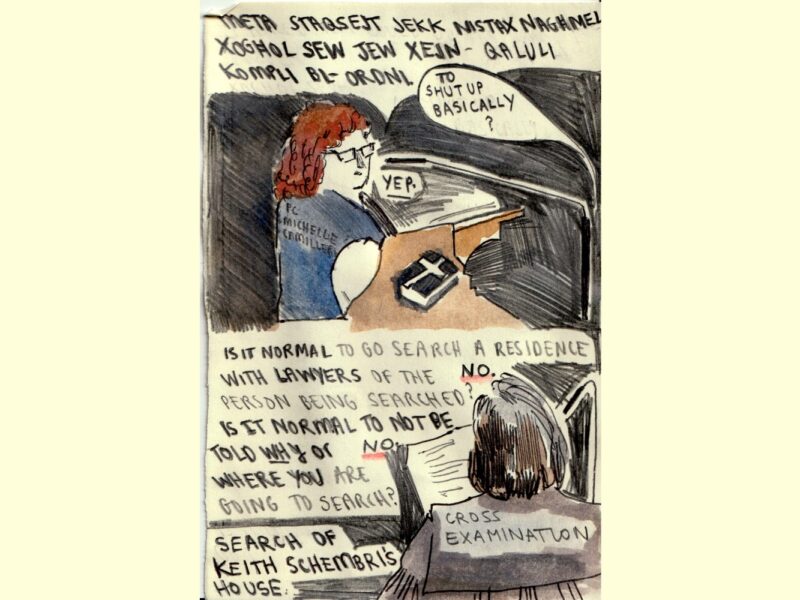 META STAQSEJT JEKK NISTAX NAGHMEL
XOGHOL SEW JEW XEJN - QALULI
KOMPLI BL-ORDNI.
TO
SHUT UP
BASICALLY
?
YEP.
PC
MICHELLE
CAMILLERI
IS IT NORMAL TO GO SEARCH A RESIDENCE
WITH LAWYERS OF THE
PERSON BEING SEARCHED?
NO.
IS IT NORMAL TO NOT BE
TOLD WHY OR
WHERE YOU ARE
GOING TO SEARCH?
NO.
CROSS
EXAMINATION
SEARCH OF
KEITH SCHEMBRI'S
HOUSE.